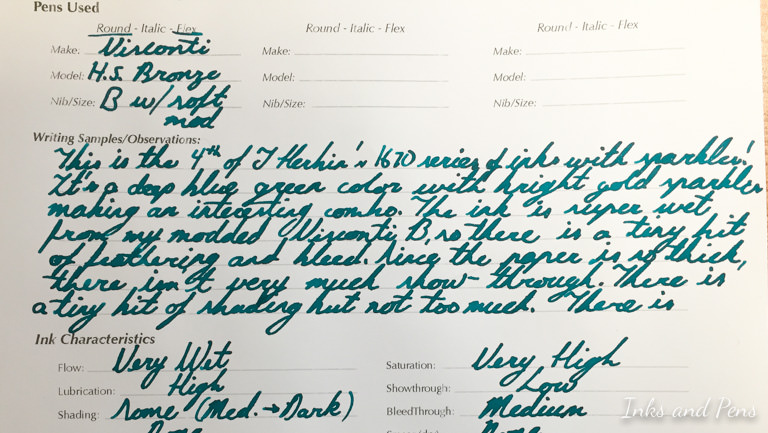 Pens Used
Round - Italic - Flex Round - Italic - Flex Round - Italic - Flex
Make: Visconti Make: Make:
Model: H.S. Bronze Model: Model:
Nib/Size: B w/ soft Nib/Size: Nib/Size:
mod
Writing Samples/Observations:
This is the 4th of J Herbin's 1670 series of inks with sparkles!
It's a deep blue green color with bright gold sparkles
making an interesting combo. The ink is super wet
from my modded Visconti B, so there is a tiny bit
of feathering and bleed. Since the paper is so thick,
there isn't very much show-through. There is
a tiny bit of shading but not too much. There is
Ink Characteristics
Flow: Very Wet Saturation: Very High
Lubrication: High Showthrough: Low
Shading: Some (Med. → Dark) BleedThrough: Medium
Inks and Pens